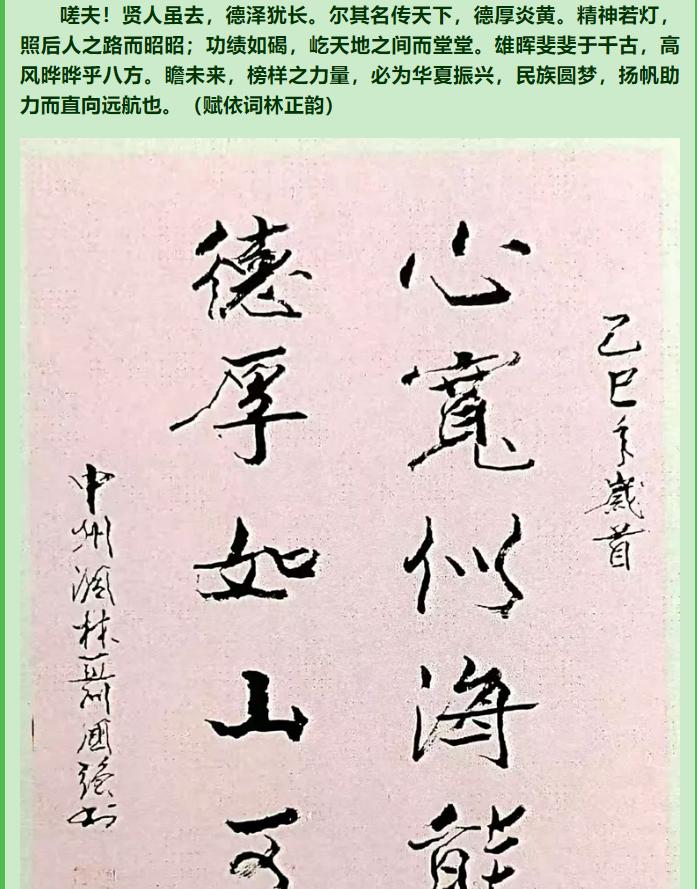 嗟夫！贤人虽去，德泽犹长。尔其名传天下，德厚炎黄。精神若灯，
照后人之路而昭昭；功绩如碣，屹天地之间而堂堂。雄晖斐斐于千古，高
风晔晔乎八方。瞻未来，榜样之力量，必为华夏振兴，民族圆梦，扬帆助
力而直向远航也。（赋依词林正韵）
乙巳年岁首
心寬似海能
德厚如山可
中州源林聂国強书